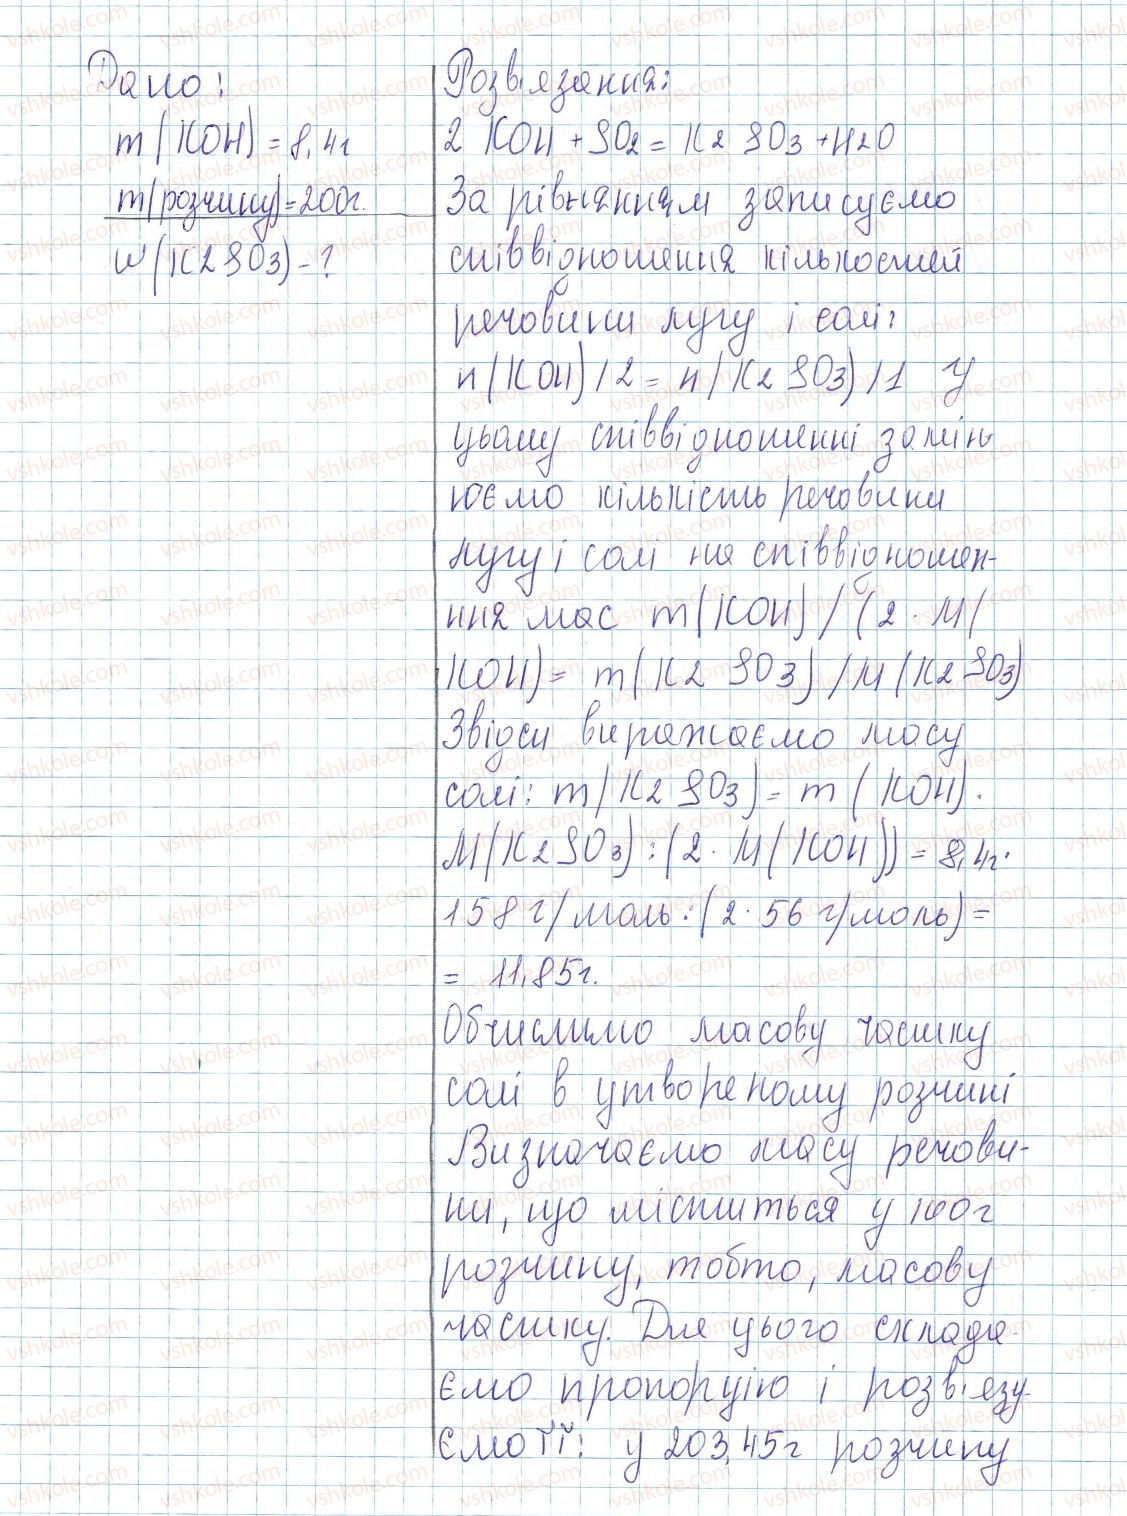 Дано:
m(KOH)=8,4г
m(розчину)=200г.
w(K2SO3)-?
Розв'язання:
2 KOH + SO2 = K2 SO3 + H2O
За рівнянням записуємо
співвідношення кількостей
речовини лугу і солі:
n(KOH)/2 = n(K2 SO3)/1 У
цьому співвідношенні замін-
юємо кількість речовини
лугу і солі на співвідношен-
ння мас m(KOH)/(2·M(
KOH)= m(K2 SO3)/M(K2 SO3)
Звідси виражаємо масу
солі: m(K2 SO3)= m(KOH)·
M(K2SO3):(2·M(KOH))=8,4г·
158г/моль:(2·56 г/моль)=
= 11,85г.
Обчислимо масову частку
солі в утвореному розчині
Визначаємо масу речови-
ни, що міститься у 100г
розчину, тобто, масову
частку. Для цього склада-
ємо пропорцію і розв'язу-
ємо її: у 203,45г розчину
vshkole.com